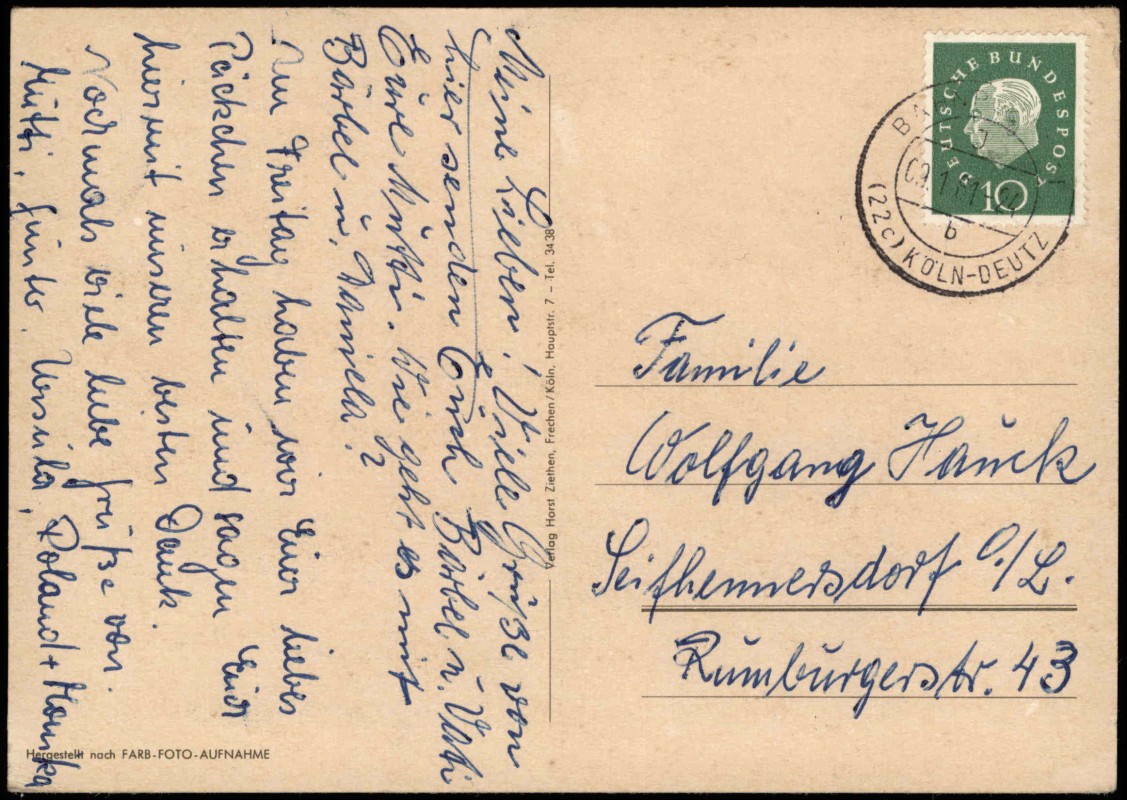 Meine Lieben! Viele Grüße von
hier senden Euch Bärbel u. Vati
Eure Mutti. Wie geht es mit
Bärbel u. Daniela?
Am Freitag haben wir Euer liebes
Päckchen erhalten und sagen Euch
hiermit unseren besten Dank.
Nochmals viele liebe Grüße von
Mutti, Günter, Ursula, Roland + Monika
Hergestellt nach FARB-FOTO-AUFNAHME
Verlag Horst Ziethen, Frechen/Köln, Hauptstr. 7 – Tel. 3438
DEUTSCHE BUNDESPOST
10
b
(22c) KÖLN-DEUTZ
Familie
Wolfgang Hauck
Seifhennersdorf O/L.
Rumburgerstr. 43